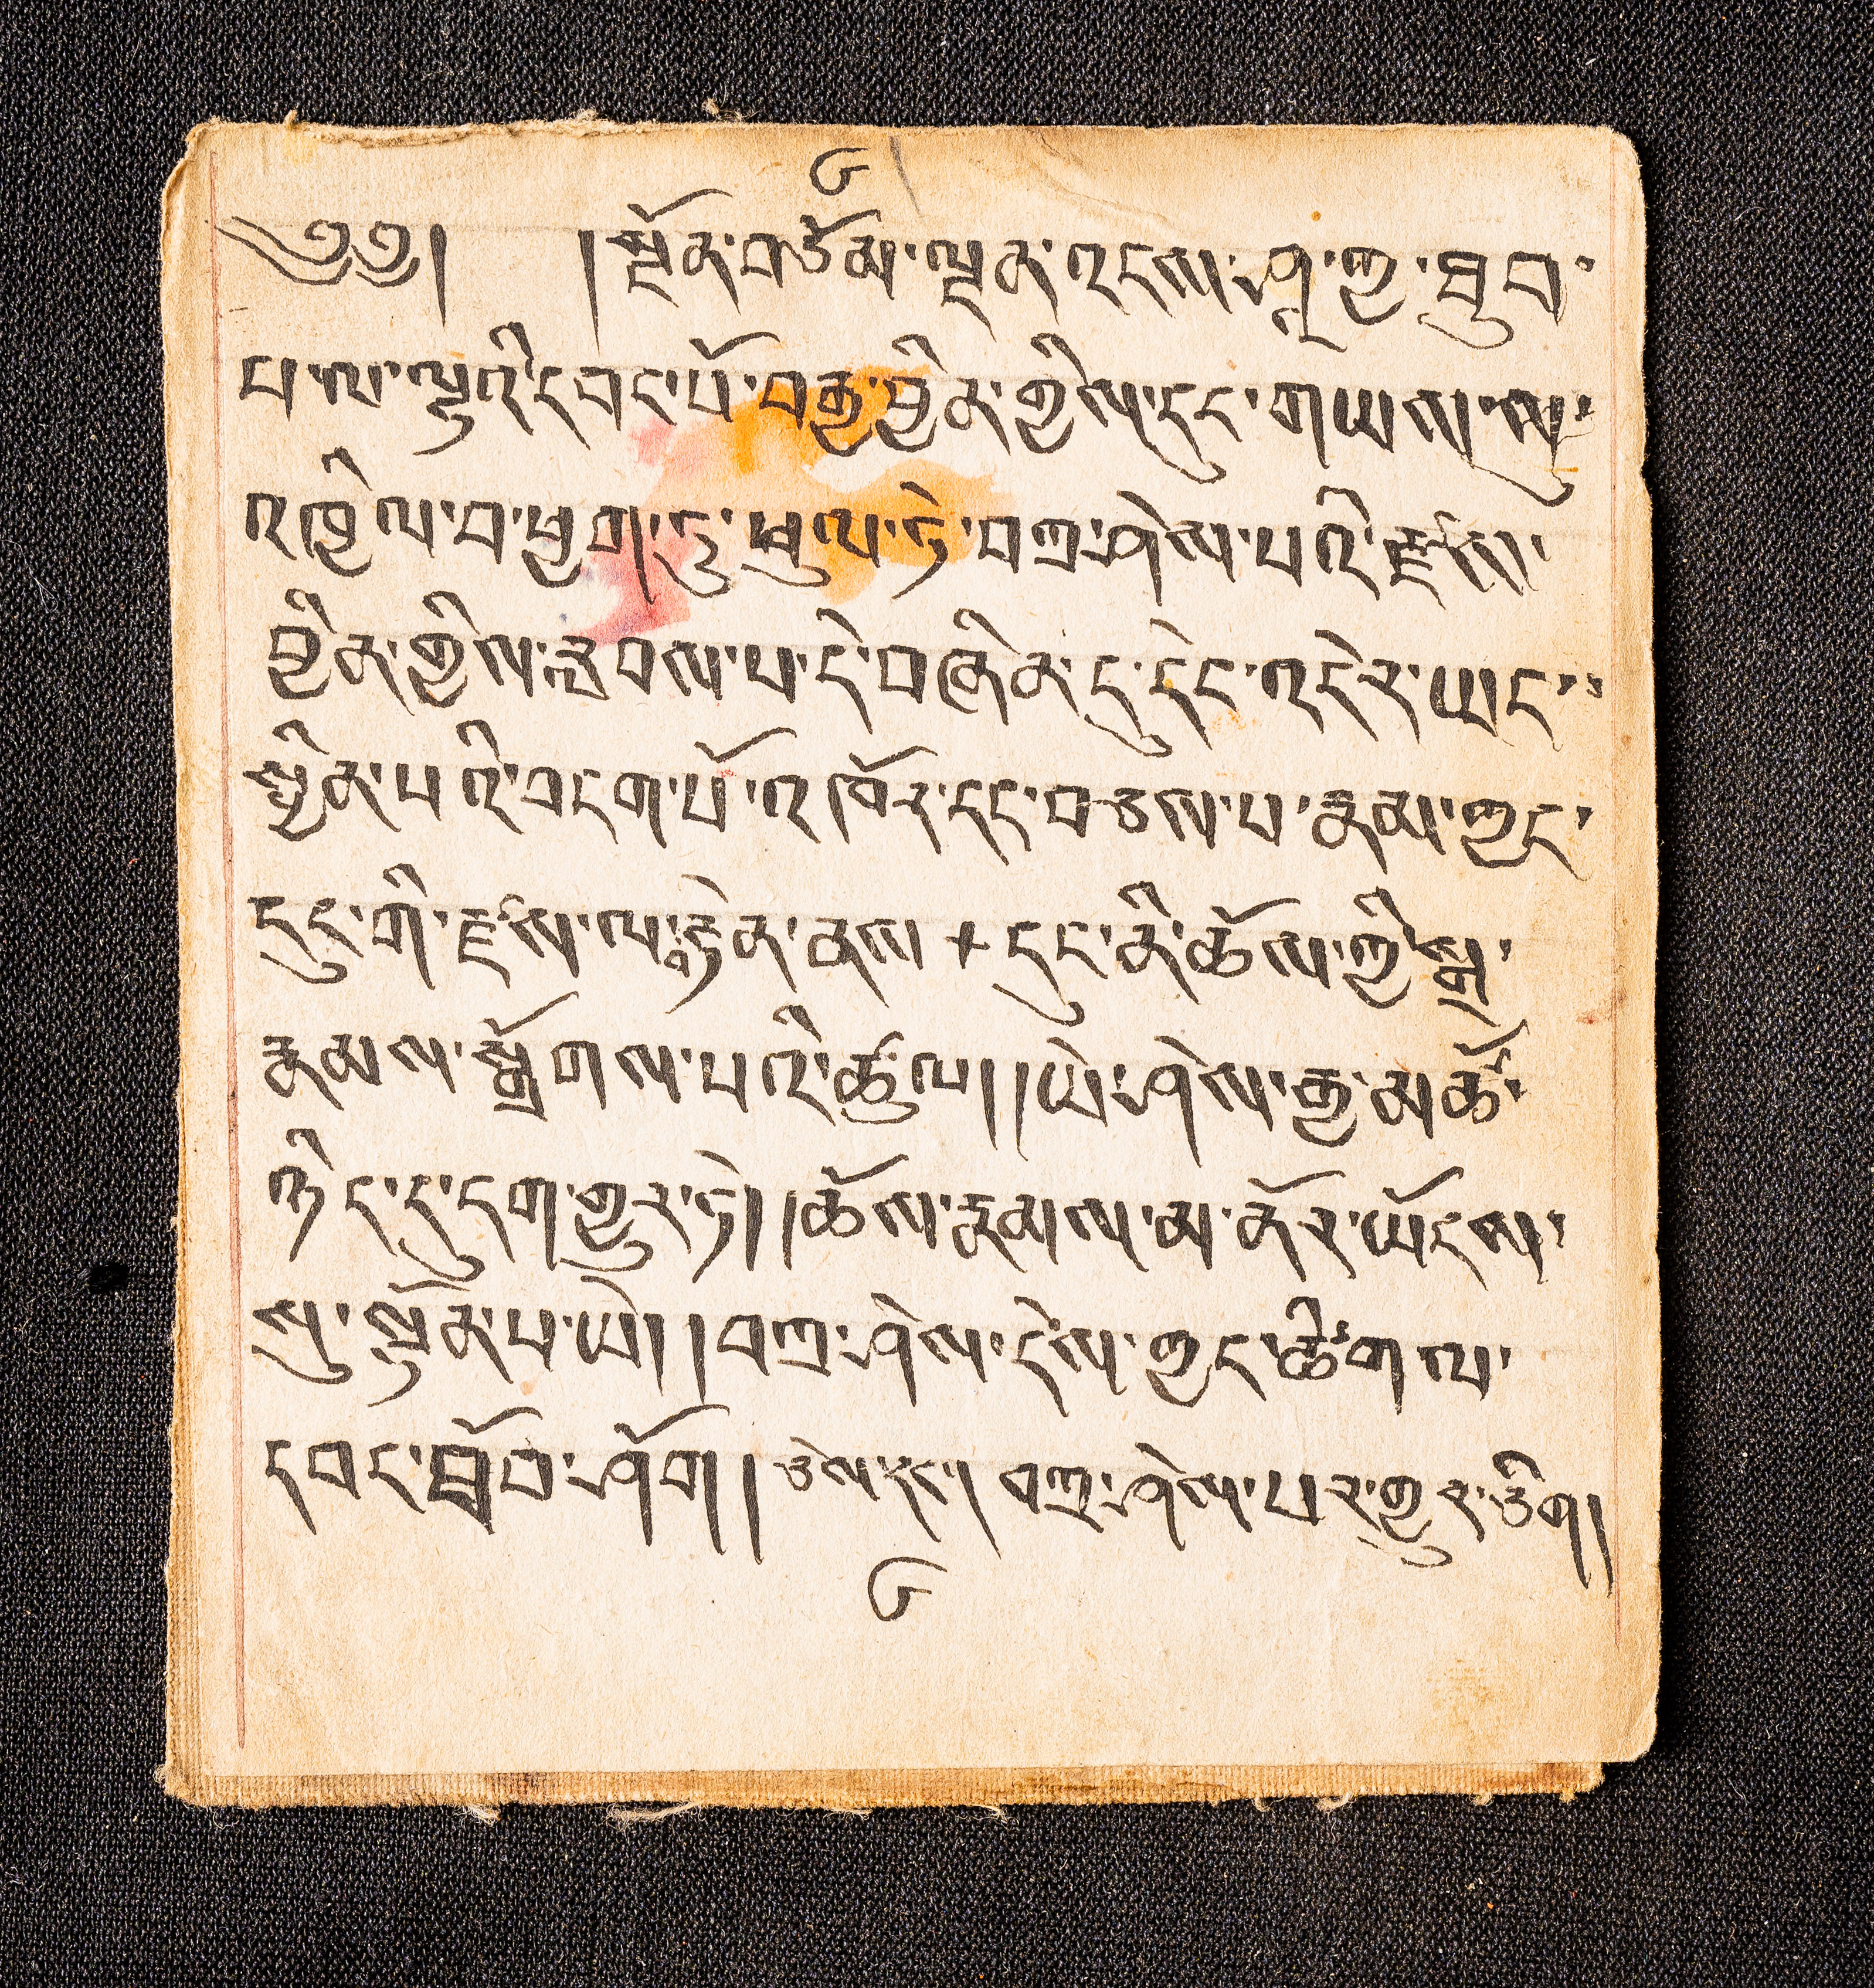 ༦
༄༅། །སྔོན་བཅོམ་ལྡན་འདས་ཤཱ་ཀྱ་ཐུབ་
པ་ལ་ལྷའི་དབང་པོ་བརྒྱ་བྱིན་གྱིས་དུང་གཡས་སུ་
འཁྱིལ་བ་ཕྱག་ཏུ་ཕུལ་ཏེ་བཀྲ་ཤིས་པའི་རྫས་སུ་
བྱིན་གྱིས་རླབས་པ་དེ་བཞིན་དུ་དེང་འདིར་ཡང་
སྦྱིན་པའི་བདག་པོ་འཁོར་དང་བཅས་པ་རྣམ་ཀྱང་
དུང་གི་རྫས་ལ་རྟེན་ནས + དུང་ནི་ཆོས་ཀྱི་སྒྲ་
རྣམས་སྒྲོགས་པའི་ཚུལ། །ཡེ་ཤེས་རྒྱ་མཚོ་
ཉིད་དུ་དག་གྱུར་ཏེ། །ཆོས་རྣམས་མ་ནོར་ཡོངས་
སུ་སྟོན་པ་ཡི། །བཀྲ་ཤིས་དེས་ཀྱང་ཚིག་ལ་
དབང་ཐོབ་ཤོག །ཅེས་དང་། བཀྲ་ཤིས་པར་གྱུར་ཅིག།
༦